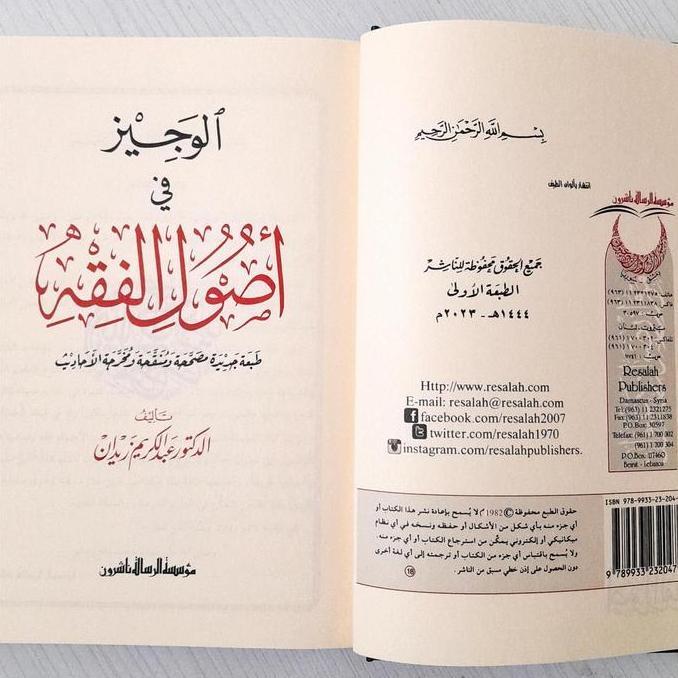 الوجيز
في
أصول الفقه
طبعة جديدة مصححة ومنقحة ومخرجة الأحاديث
تأليف
الدكتور عبد الكريم زيدان
مؤسسة الرسالة ناشرون
بسم الله الرحمن الرحيم
انتشار بألوان الطيف
جميع الحقوق محفوظة للناشر
الطبعة الأولى
١٤٤٤هـ - ٢٠٢٣م
Http://www.resalah.com
E-mail: resalah@resalah.com
facebook.com/resalah2007
twitter.com/resalah1970
instagram.com/resalahpublishers.
حقوق الطبع محفوظة © 1982م لا يُسمح بإعادة نشر هذا الكتاب أو
أي جزء منه بأي شكل من الأشكال أو حفظه ونسخه في أي نظام
ميكانيكي أو إلكتروني يمكّن من استرجاع الكتاب أو أي جزء منه.
ولا يُسمح باقتباس أي جزء من الكتاب أو ترجمته إلى أي لغة أخرى
دون الحصول على إذن خطي مسبق من الناشر.
18
مؤسسة الرسالة ناشرون
دمشق - سوريا
هاتف
(٩٦٣) ١١ ٢٣٢١٢٧٥
فاكس
(٩٦٣) ١١ ٢٣١١٨٣٨
ص.ب ٣٠٥٩٧
بيروت - لبنان
تلفاكس
(٩٦١) ١ ٧٠٠ ٣٠٢
(٩٦١) ١ ٧٠٠ ٣٠٤
Resalah
Publishers
Damascus - Syria
Tel: (963) 11 2321275
Fax: (963) 11 2311838
P.O.Box: 30597
Telefax: (961) 1 700 302
(961) 1 700 304
P.O.Box: 117460
Beirut - Lebanon
ISBN 978-9933-23-204-
9 789933 232047